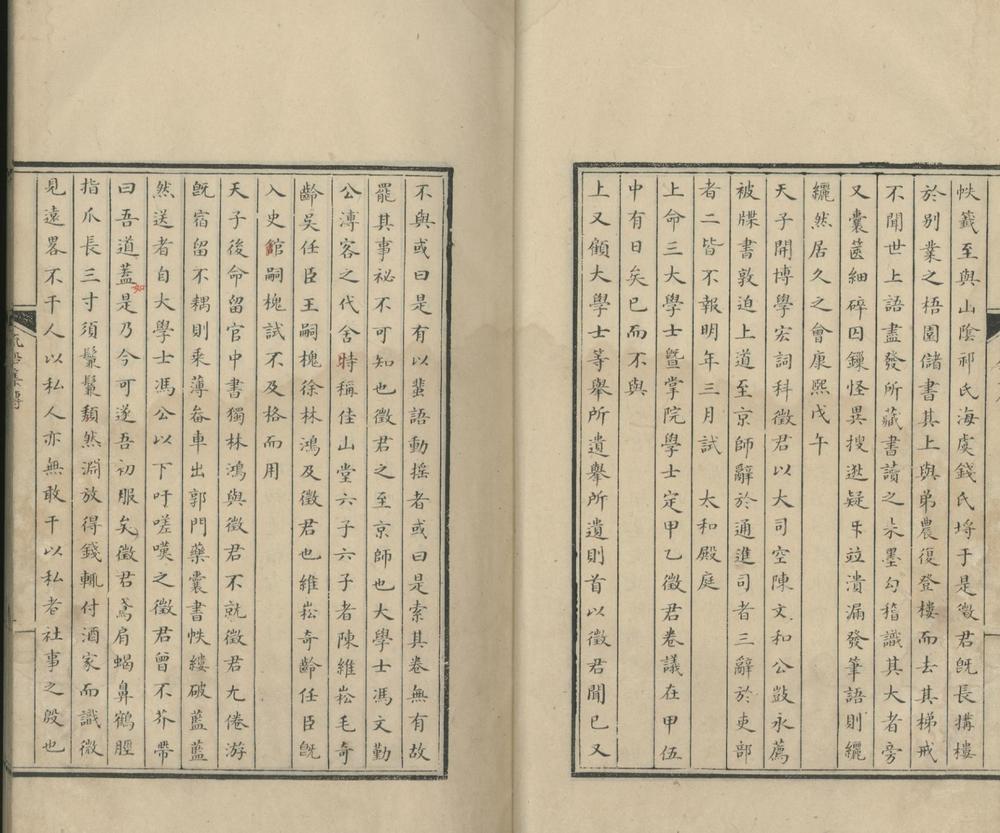 帙籤至與山陰祁氏海虞錢氏埒于是徵君旣長搆樓
於别業之梧園儲書其上與弟農復登樓而去其梯戒
不聞世上語盡發所藏書讀之朱墨勾稽識其大者旁
又囊篋細碎囚鏁怪異搜逖疑㸦竝潰漏發筆語則纚
纚然居久之會康熙戊午
天子開博學宏詞科徵君以大司空陳文和公敱永薦
被牒書敦迫上道至京師辭於通進司者三辭於吏部
者二皆不報明年三月試　太和殿庭
上命三大學士曁掌院學士定甲乙徵君卷議在甲伍
中有日矣已而不與
上又顧大學士等舉所遺舉所遺則首以徵君聞已又
不與或曰是有以蜚語動揺者或曰是索其卷無有故
罷其事祕不可知也徵君之至京師也大學士馮文勤
公漙客之代舍特稱佳山堂六子六子者陳維崧毛奇
齡吳任臣王嗣槐徐林鴻及徵君也維崧奇齡任臣旣
入史館嗣槐試不及格而用
天子後命留官中書獨林鴻與徵君不就徵君尢倦游
旣宿留不耦則乘薄畚車出郭門藥囊書帙縷破藍藍
然送者自大學士馮公以下吁嗟嘆之徵君曾不芥帶
曰吾道蓋是乃今可遂吾初服矣徵君鳶肩蝎鼻鶴脛
如
指爪長三寸須鬑鬑頽然淵放得錢輒付酒家而識微
見遠畧不干人以私人亦無敢干以私者社事之殷也